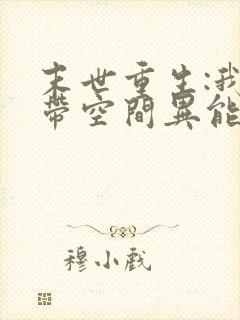 末世重生:我
帶空間異能
穆小戲